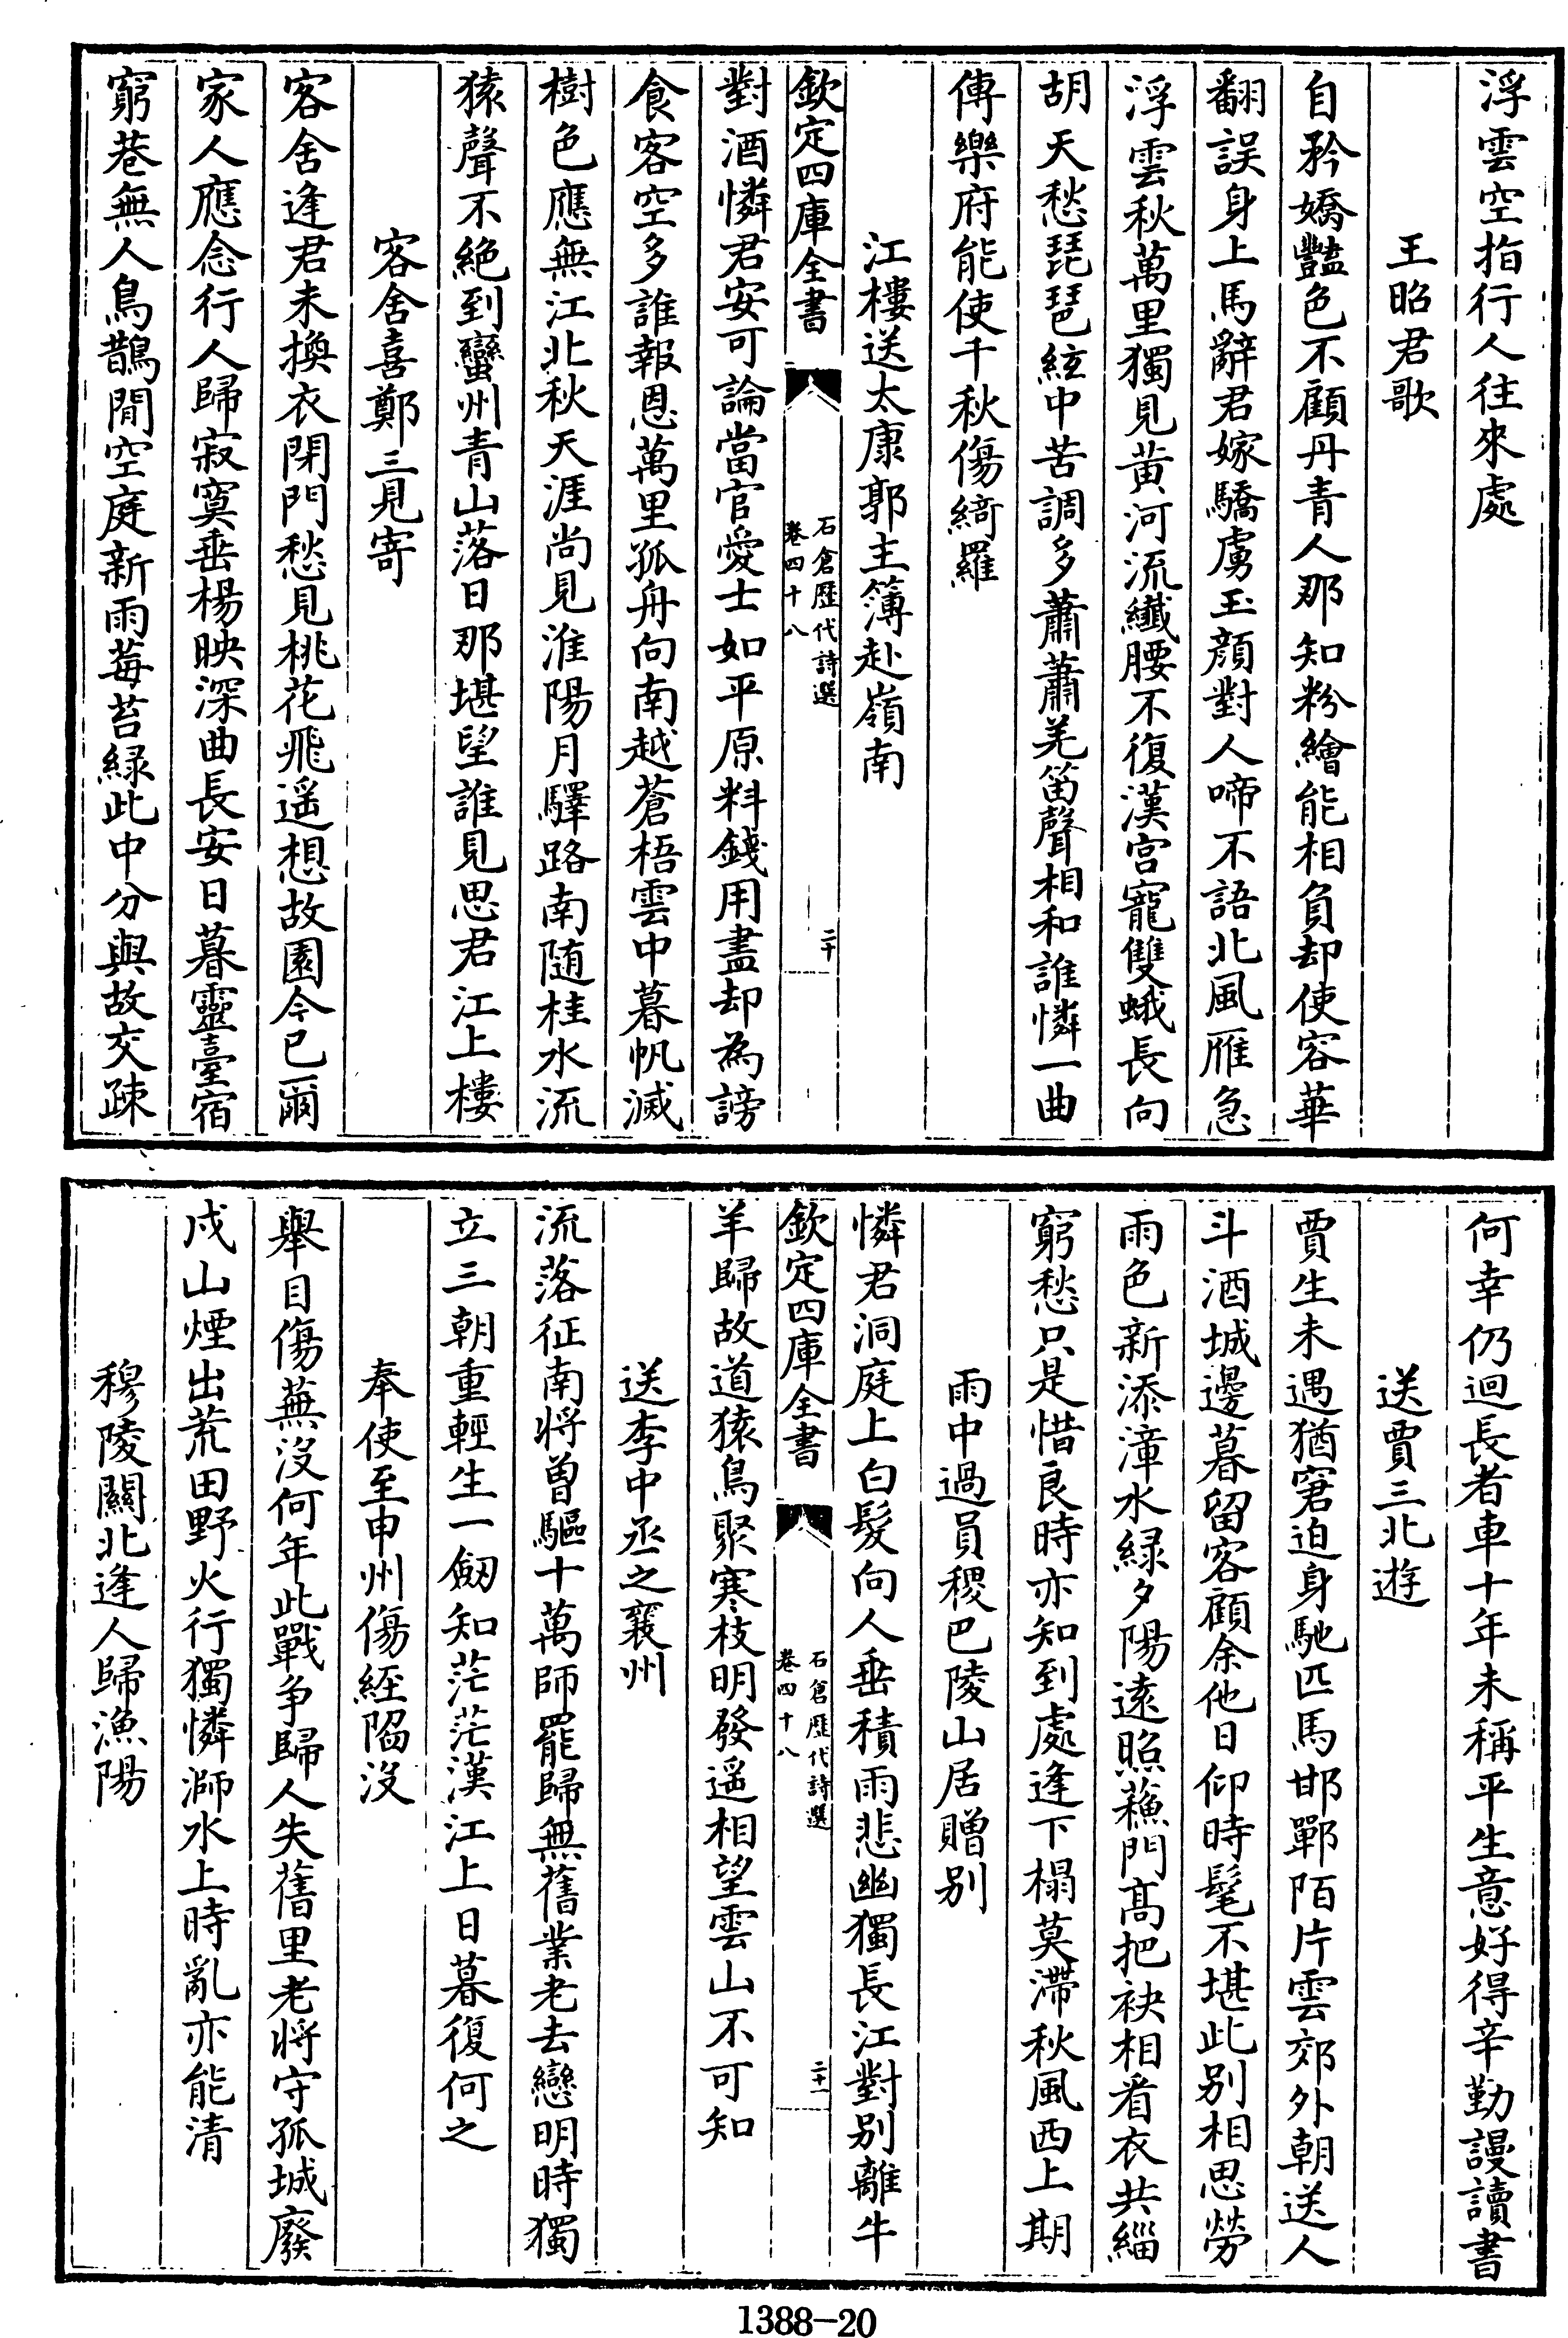 浮雲空指行人往來處
王昭君歌
自矜嬌豔色不顧丹青人那知粉繪能相負却使容華
翻誤身上馬辭君嫁驕虜玉顔對人啼不語北風雁急
浮雲秋萬里獨見黄河流纖腰不復漢宫寵雙蛾長向
胡天愁琵琶絃中苦調多蕭蕭羌笛聲相和誰憐一曲
傳樂府能使千秋傷綺羅
江樓送太康郭主簿赴嶺南
欽定四庫全書
石倉歷代詩選
卷四十八
二十
對酒憐君安可論當官愛士如平原料錢用盡却為謗
食客空多誰報恩萬里孤舟向南越蒼梧雲中暮帆滅
樹色應無江北秋天涯尚見淮陽月驛路南隨桂水流
猿聲不絶到蠻州青山落日那堪望誰見思君江上樓
客舍喜鄭三見寄
客舍逢君未換衣閉門愁見桃花飛遥想故園今已爾
家人應念行人歸寂寞垂楊映深曲長安日暮靈臺宿
窮巷無人鳥鵲閒空庭新雨莓苔緑此中分與故交疎
何幸仍迴長者車十年未稱平生意好得辛勤謾讀書
送賈三北遊
賈生未遇猶窘迫身馳匹馬邯鄲陌片雲郊外朝送人
斗酒城邊暮留客顧余他日仰時髦不堪此别相思勞
雨色新添漳水緑夕陽遠照蘓門髙把袂相看衣共緇
窮愁只是惜良時亦知到處逢下榻莫滯秋風西上期
雨中過員稷巴陵山居贈别
憐君洞庭上白髮向人垂積雨悲幽獨長江對别離牛
欽定四庫全書
石倉歷代詩選
卷四十八
二十一
羊歸故道猿鳥聚寒枝明發遥相望雲山不可知
送李中丞之襄州
流落征南将曽驅十萬師罷歸無舊業老去戀明時獨
立三朝重輕生一劒知茫茫漢江上日暮復何之
奉使至申州傷經陷没
舉目傷蕪没何年此戰争歸人失舊里老将守孤城廢
戍山煙出荒田野火行獨憐溮水上時亂亦能清
穆陵關北逢人歸漁陽
1388-20